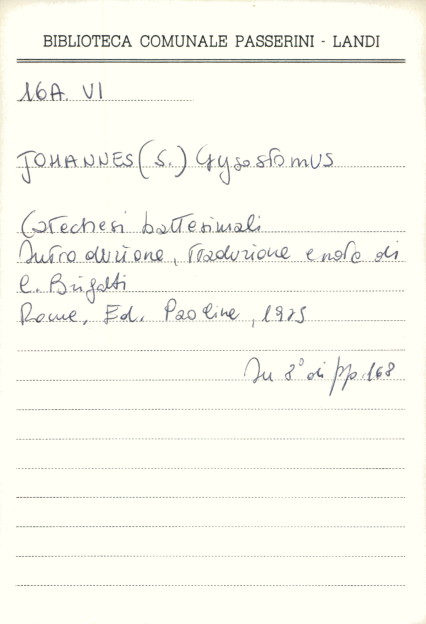 BIBLIOTECA COMUNALE PASSERINI - LANDI
16A. VI
JOHANNES (S.) Crysostomus
Catechesi battesimali
Introduzione, traduzione e note di
C. Brigatti
Roma, Ed. Paoline, 1975
In 8° di pp. 168